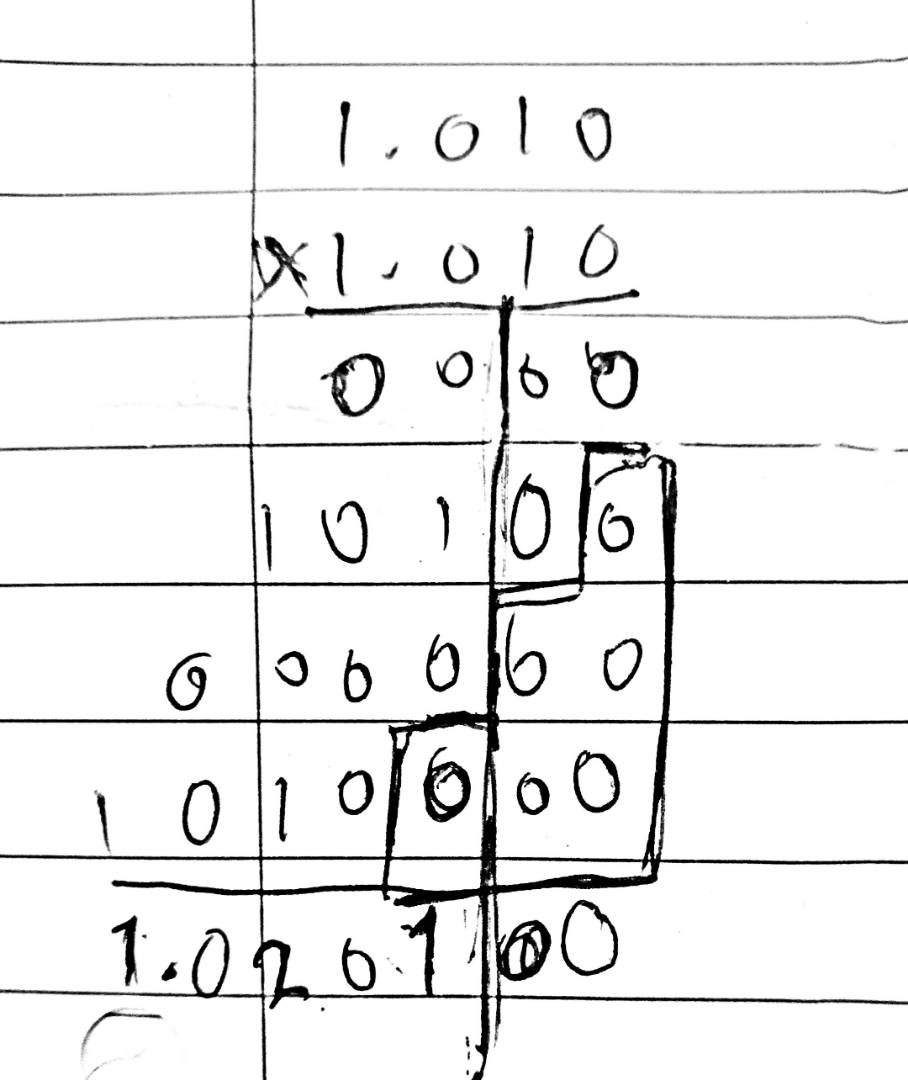 1.010
X1.010
0000
10100
000000
1010000
1.020100